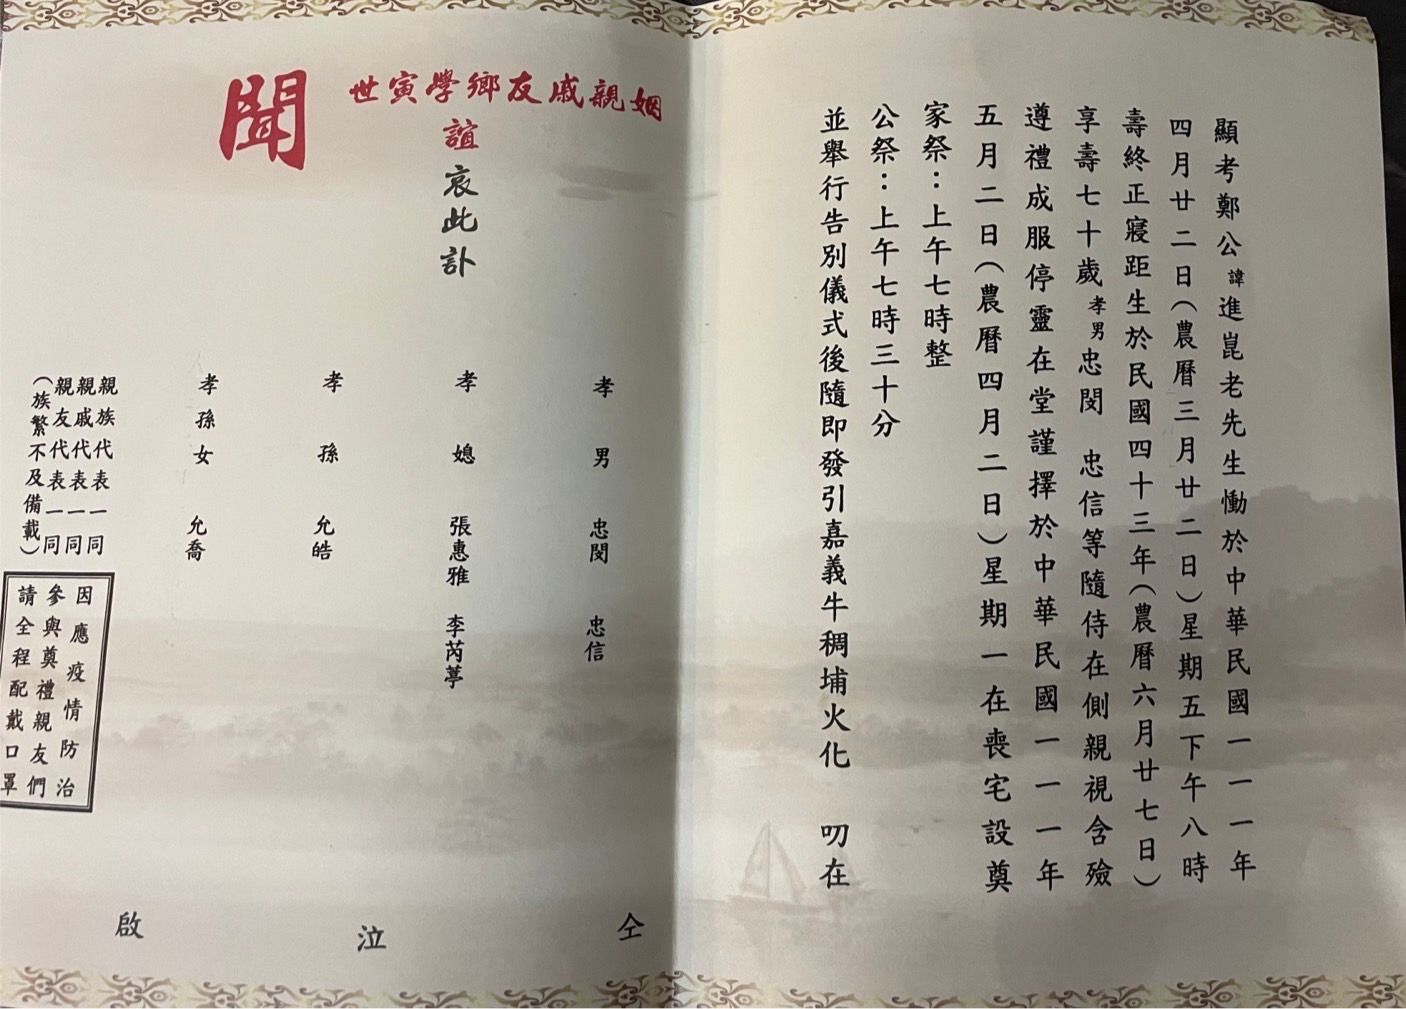 顯考鄭公諱進崑老先生慟於中華民國一一一年
四月廿二日(農曆三月廿二日)星期五下午八時
壽終正寢距生於民國四十三年(農曆六月廿七日)
享壽七十歲孝男忠閔 忠信等隨侍在側親視含殮
遵禮成服停靈在堂謹擇於中華民國一一一年
五月二日(農曆四月二日)星期一在喪宅設奠
家祭:上午七時整
公祭:上午七時三十分
並舉行告別儀式後隨即發引嘉義牛稠埔火化 叨在
姻親戚友鄉學寅世
誼哀此訃
聞
孝男 忠閔 忠信
孝媳 張惠雅 李芮葶
孝孫 允皓
孝孫女 允喬
親族代表一同
親戚代表一同
親友代表一同
(族繁不及備載)
仝 泣 啟
因應疫情防治
參與奠禮親友們
請全程配戴口罩